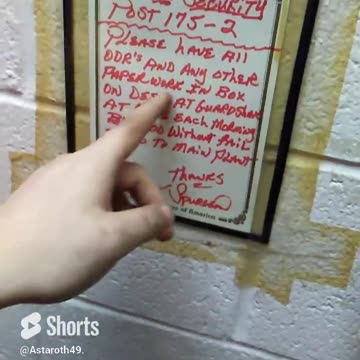 SECURITY
POST 175-2
PLEASE HAVE ALL
DDR'S AND ANY OTHER
PAPERWORK IN BOX
ON AT GUARDSHACK
AT EACH MORNING
WITHOUT FAIL
TO MAIN PLANT
THANKS
of America
Shorts
@Astaroth49.